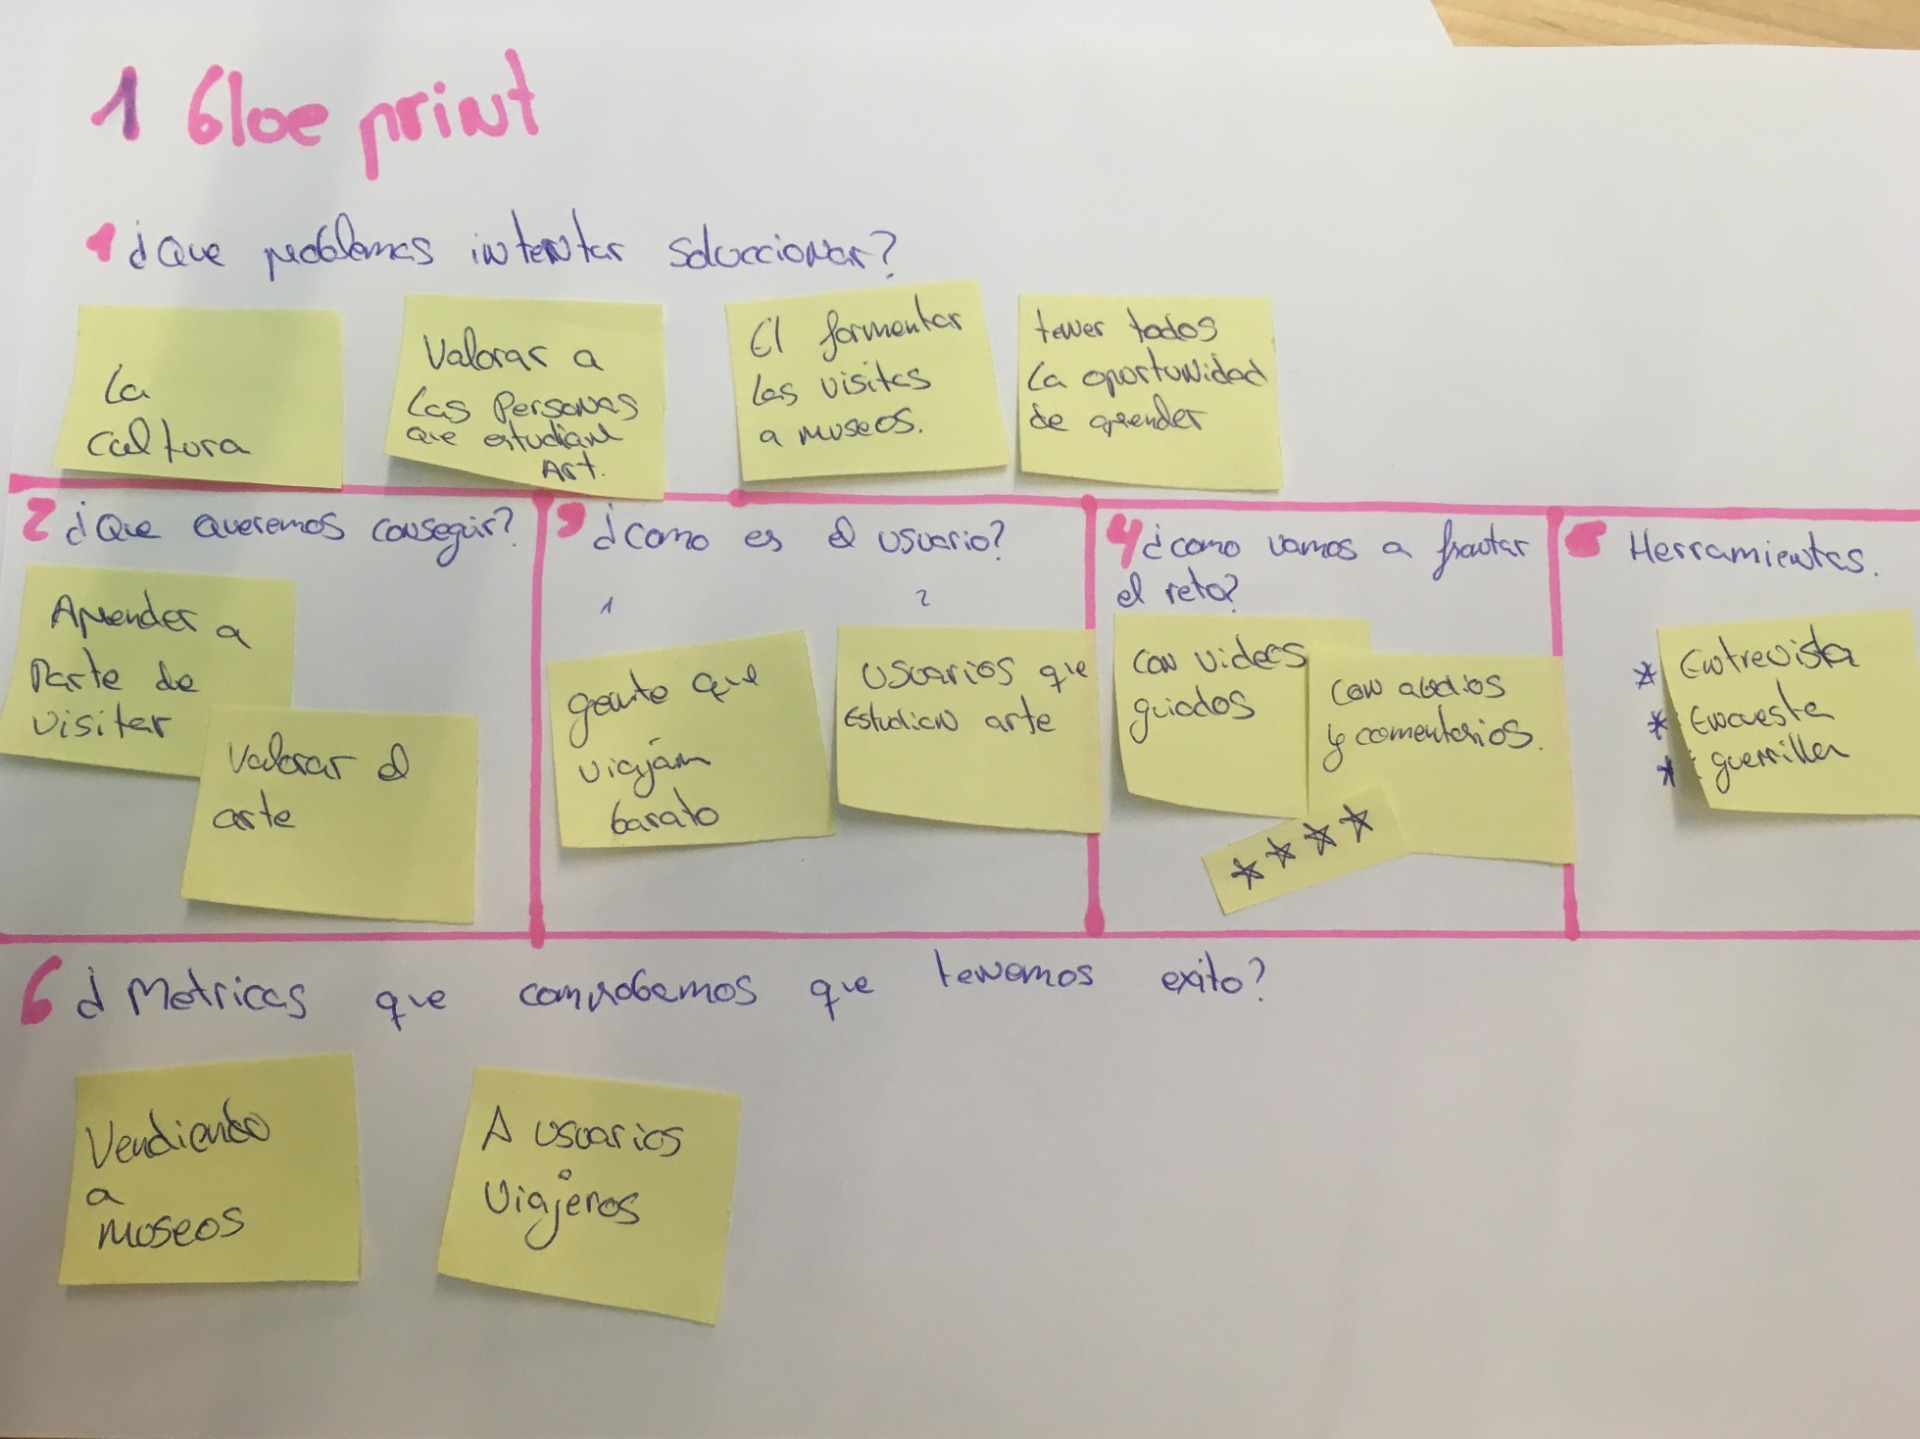 1 Bloe print
1 ¿Que problemas intentar soluccionar?
La
cultura
Valorar a
Las Personas
que estudian
Art.
El formentar
las visitas
a museos.
tener todos
La oportunidad
de aprender
2 ¿Que queremos conseguir?
Aprender a
Parte de
visitar
Valorar el
arte
3 ¿como es el usuario?
1
2
gente que
viajan
barato
Usuarios que
Estudian arte
4 ¿como vamos a frontar
el reto?
con videos
guiados
con audios
y comentarios.
5 Herramientas.
* Entrevista
* Encuesta
* guerrilla
6 ¿Metricas que comprobamos que tenemos exito?
Vendiendo
a
museos
A usuarios
Viajeros